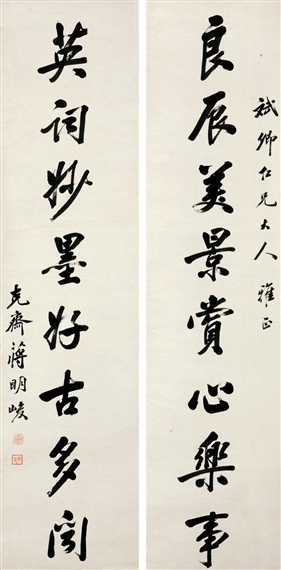 斌卿仁兄大人雅正
良辰美景賞心樂事
英詞妙墨好古多聞
克齋蔣明峻